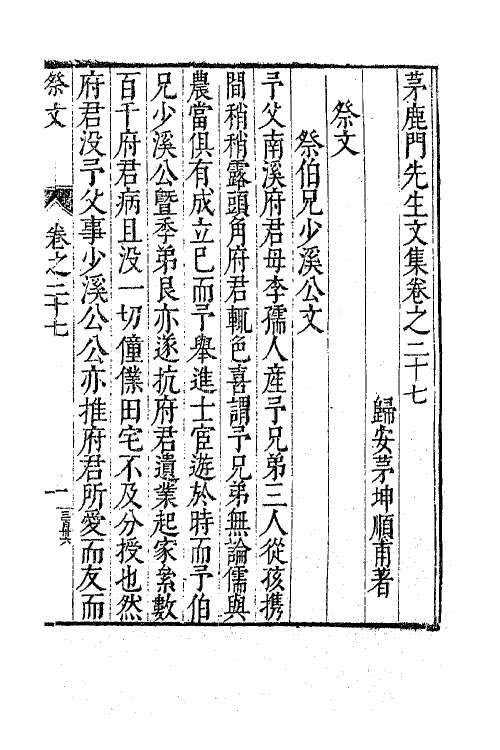 茅鹿門先生文集卷之二十七
歸安茅坤順甫著
祭文
祭伯兄少溪公文
予父南溪府君母李孺人産予兄弟三人從孩携
間稍稍露頭角府君輒色喜謂予兄弟無論儒與
農當俱有成立已而予舉進士宦遊於時而予伯
兄少溪公曁季弟艮亦遂抗府君遺業起家絫數
百千府君病且没一切僮僕田宅不及分授也然
府君没予父事少溪公公亦推府君所愛而友而
祭文
卷之二十七
一